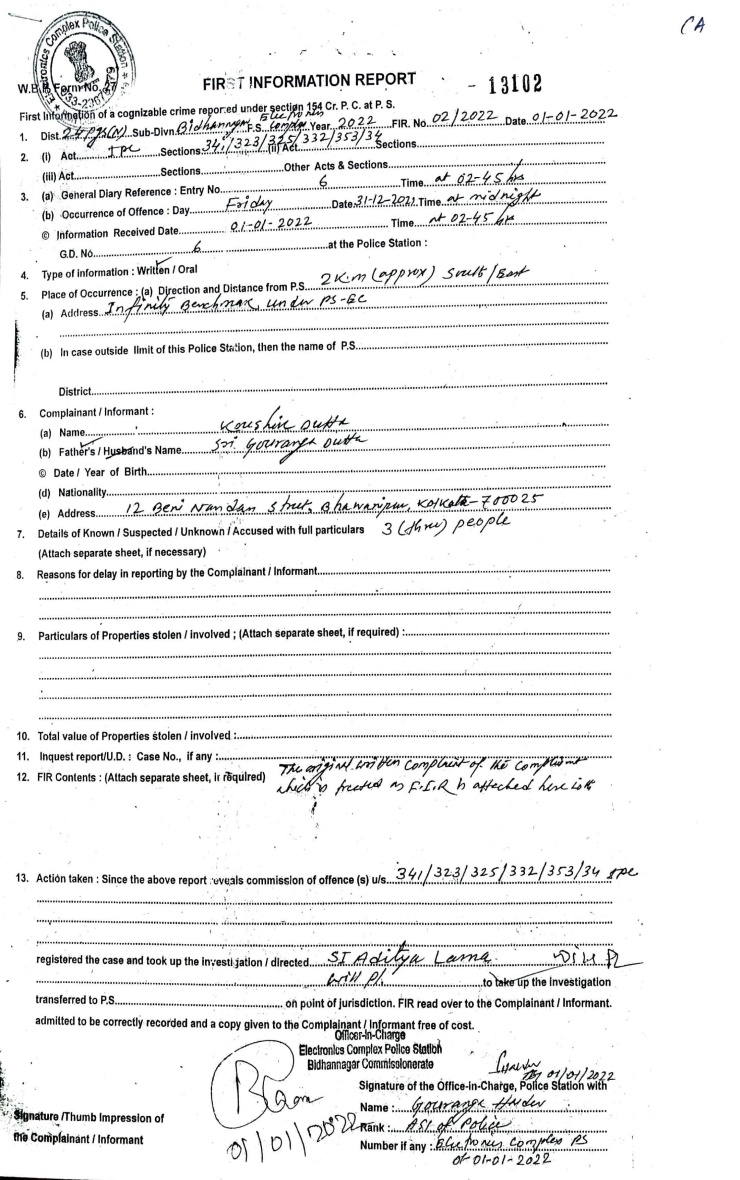 CA
Electronics Complex Police Station
W.B.P. Form No.
FIRST INFORMATION REPORT - 13102
First Information of a cognizable crime reported under section 154 Cr. P. C. at P. S.
1. Dist. 24 Pgs(N) Sub-Divn. Bidhannagar P.S. Electronics Complex Year 2022 FIR. No. 02/2022 Date 01-01-2022
2. (i) Act IPC Sections 341/323/325/332/353/34 (ii) Act Sections
(iii) Act Sections Other Acts & Sections
3. (a) General Diary Reference : Entry No. 6 Time at 02-45 hrs
(b) Occurrence of Offence : Day Friday Date 31-12-2021 Time at midnight
© Information Received Date 01-01-2022 Time at 02-45 hrs
G.D. No. 6 at the Police Station :
4. Type of information : Written / Oral
5. Place of Occurrence : (a) Direction and Distance from P.S. 2 K.m (approx) South/East
(a) Address Infinity Benchmark, under PS-EC
(b) In case outside limit of this Police Station, then the name of P.S.
District
6. Complainant / Informant :
(a) Name Koushik Dutta
(b) Father's / Husband's Name Sri Gouranga Dutta
© Date / Year of Birth
(d) Nationality
(e) Address 12 Beni Nandan Street, Bhawanipur, Kolkata-700025
7. Details of Known / Suspected / Unknown / Accused with full particulars 3 (three) people
(Attach separate sheet, if necessary)
8. Reasons for delay in reporting by the Complainant / Informant
9. Particulars of Properties stolen / involved ; (Attach separate sheet, if required) :
10. Total value of Properties stolen / involved :
11. Inquest report/U.D. : Case No., if any :
12. FIR Contents : (Attach separate sheet, if required) The original written complaint of the complainant
which is treated as F.I.R is attached here with
13. Action taken : Since the above report reveals commission of offence (s) u/s 341/323/325/332/353/34 IPC
registered the case and took up the investigation / directed SI Aditya Lama
will pl. to take up the investigation
transferred to P.S. on point of jurisdiction. FIR read over to the Complainant / Informant.
admitted to be correctly recorded and a copy given to the Complainant / Informant free of cost.
Officer-In-Charge
Electronics Complex Police Station
Bidhannagar Commissionerate
01/01/2022
Signature of the Office-in-Charge, Police Station with
Signature /Thumb Impression of
the Complainant / Informant
01/01/2022
Name : Gouranga Halder
Rank : ASI of Police
Number if any : Electronics Complex PS
of 01-01-2022